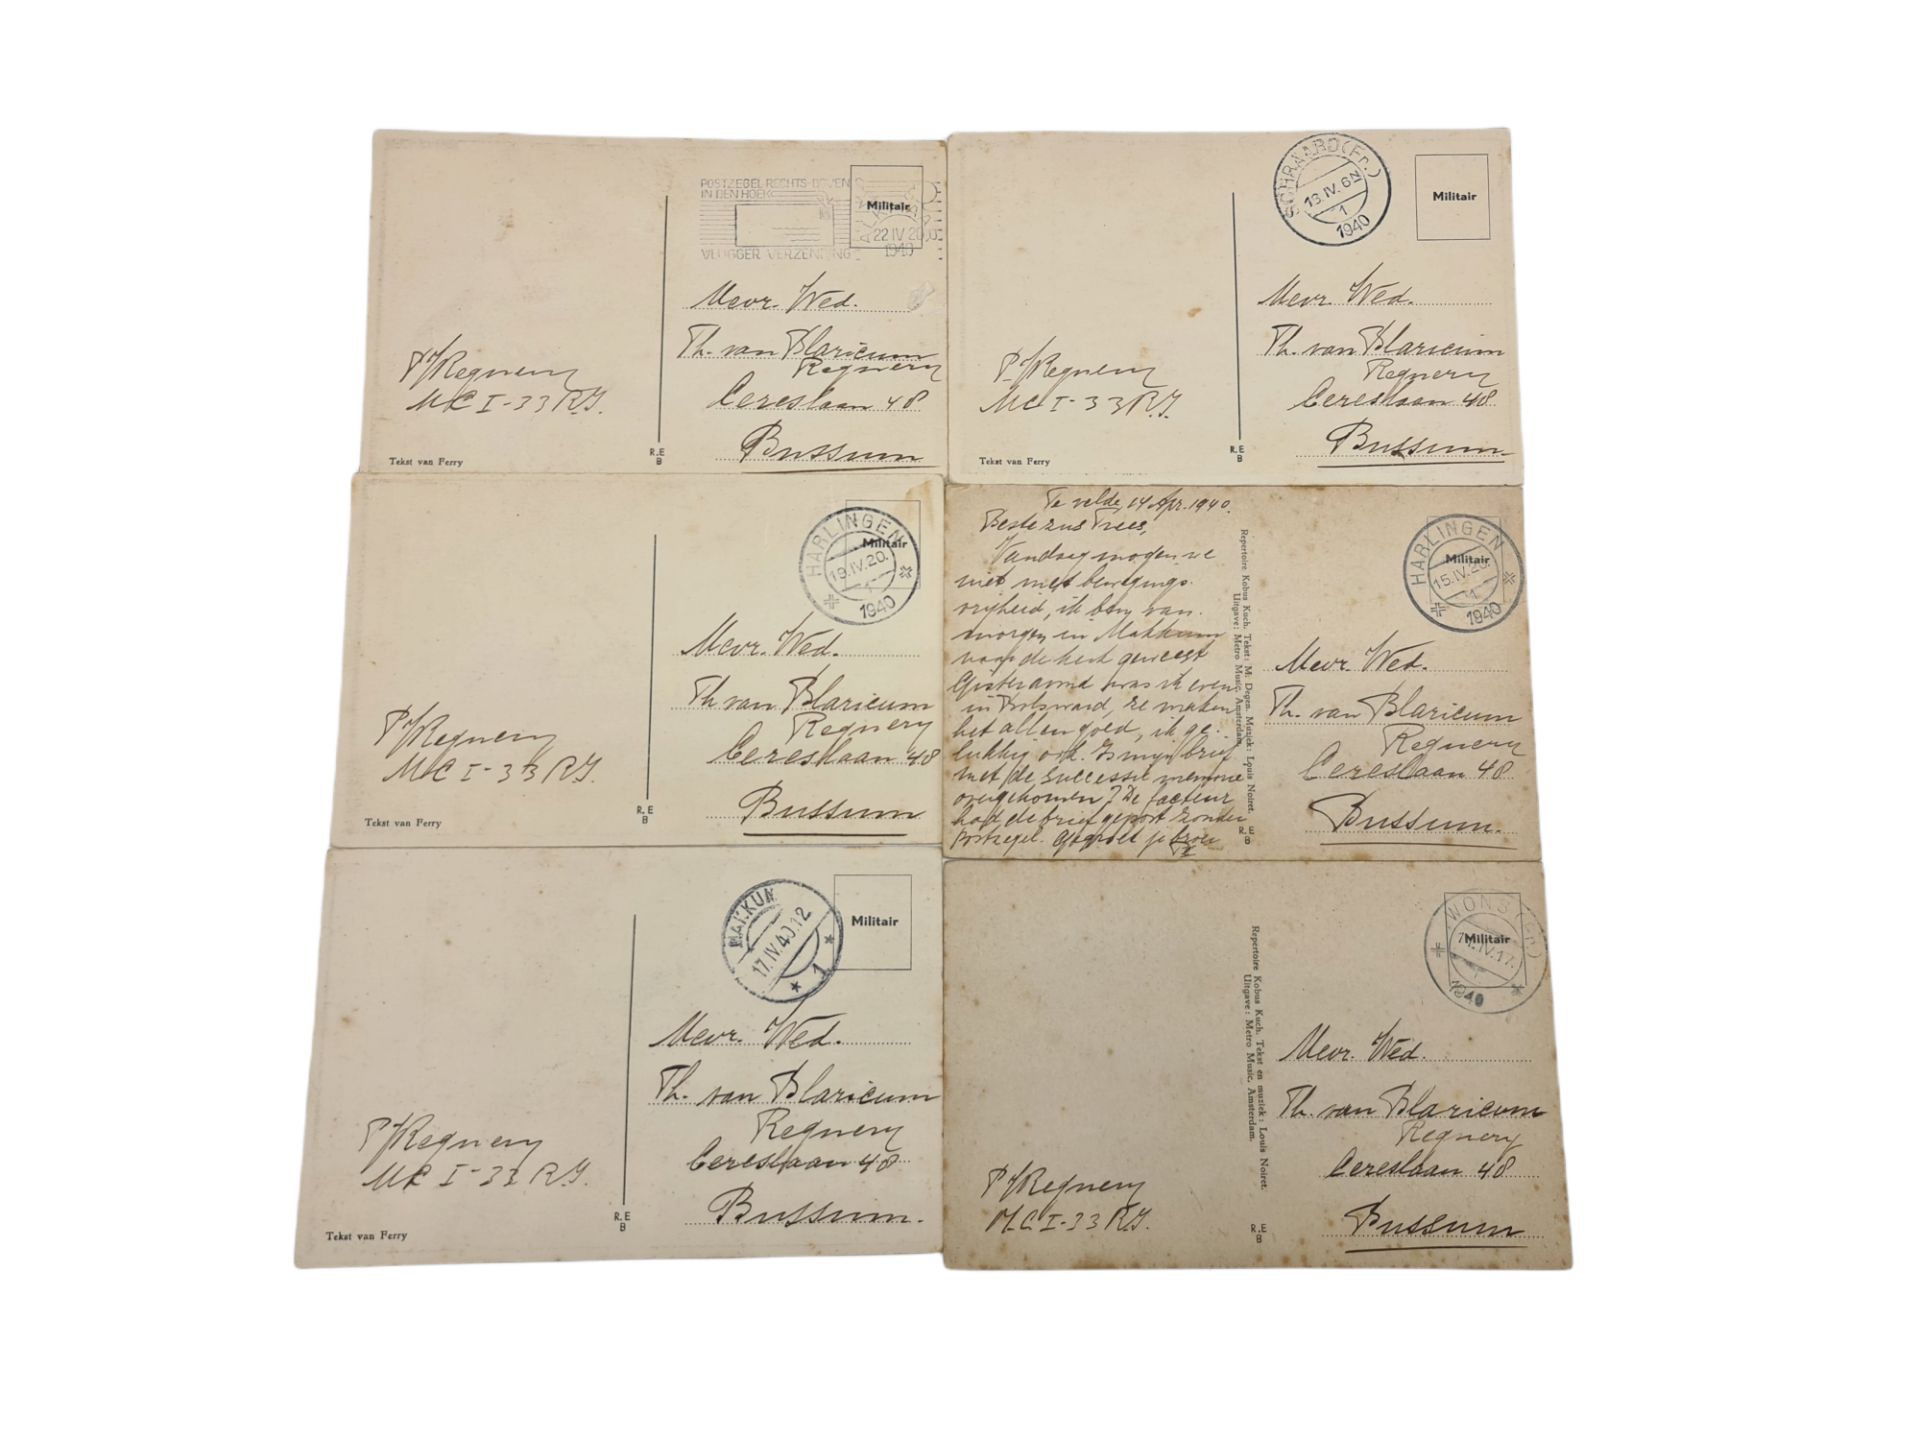 POSTZEGEL RECHTS BOVEN
IN DEN HOEK
VLUGGER VERZENDING
22 IV 20
1940
Militair
Mevr. Wed.
Th. van Blaricum
Regnery
Cereslaan 48
Bussum
P. Regnery
MC I-33 R.I.
Tekst van Ferry
R.E
B
SCHRAARD (Fr.)
13.IV.6N
1
1940
Militair
Mevr. Wed.
Th. van Blaricum
Regnery
Cereslaan 48.
Bussum.
P. Regnery
MC I-33 R.I.
Tekst van Ferry
R.E
B
HARLINGEN
19.IV.20.
1
1940
Militair
Mevr. Wed.
Th van Blaricum
Regnery
Cereslaan 48
Bussum
P Regnery
MC I-33 R.I.
Tekst van Ferry
R.E
B
Te velde, 14 Apr. 1940.
Beste zus Trees,
Vandaag mogen we
niet met bewegings-
vrijheid, ik ben van-
morgen in Makkum
naar de kerk geweest
Gisteravond was ik even
in Bolsward, ze maken
het allen goed, ik ge-
lukkig ook. Is mijn brief
met de successie memorie
overgekomen? De facteur
had de brief gepost zonder
postzegel. Gegroet je broer
Repertoire Kobus Kuch. Tekst: M. Digem. Muziek: Louis Noiret.
Uitgave: Metro Music. Amsterdam.
R.E
B
HARLINGEN
15.IV.20.
1
1940
Militair
Mevr. Wed.
Th. van Blaricum
Regnery
Cereslaan 48.
Bussum.
MAKKUM
17.IV.40.12
1
Militair
Mevr. Wed.
Th. van Blaricum
Regnery
Cereslaan 48.
Bussum.
P Regnery
MC I-33 R.I.
Tekst van Ferry
R.E
B
Repertoire Kobus Kuch. Tekst en muziek: Louis Noiret.
Uitgave: Metro Music. Amsterdam.
R.E
B
IV.17.
1940
Militair
Mevr. Wed.
Th. van Blaricum
Regnery
Cereslaan 48
Bussum
P Regnery
M.C. I-33 R.I.